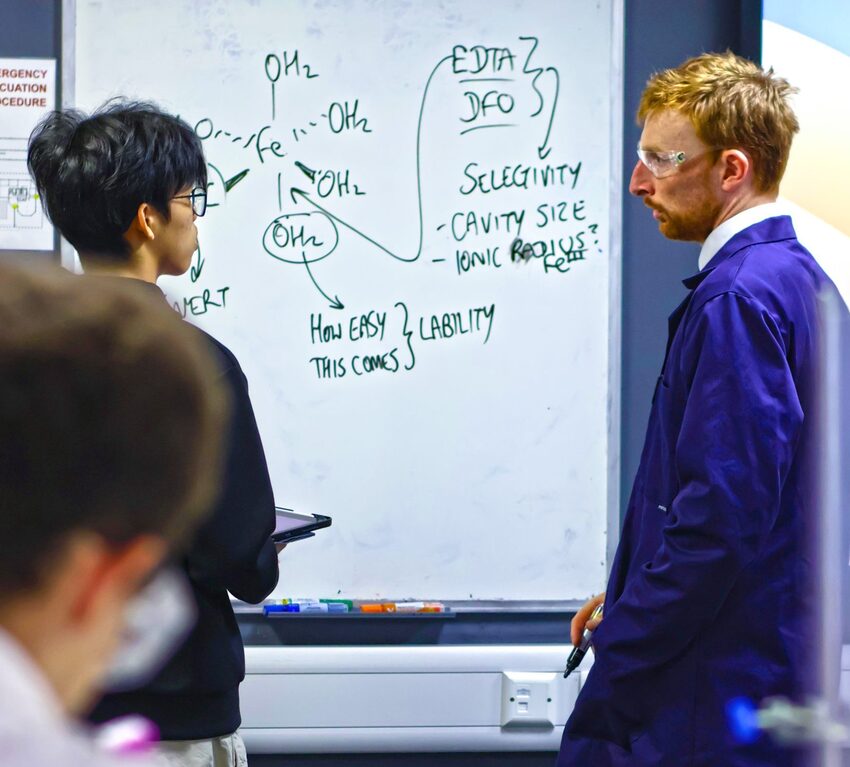 ERGENCY
CUATION
OCEDURE
OH2
OH2
Fe
OH2
OH2
EDTA
DFO
SELECTIVITY
- CAVITY SIZE
- IONIC RADIUS?
FeIII
HOW EASY
THIS COMES
LABILITY
VERT